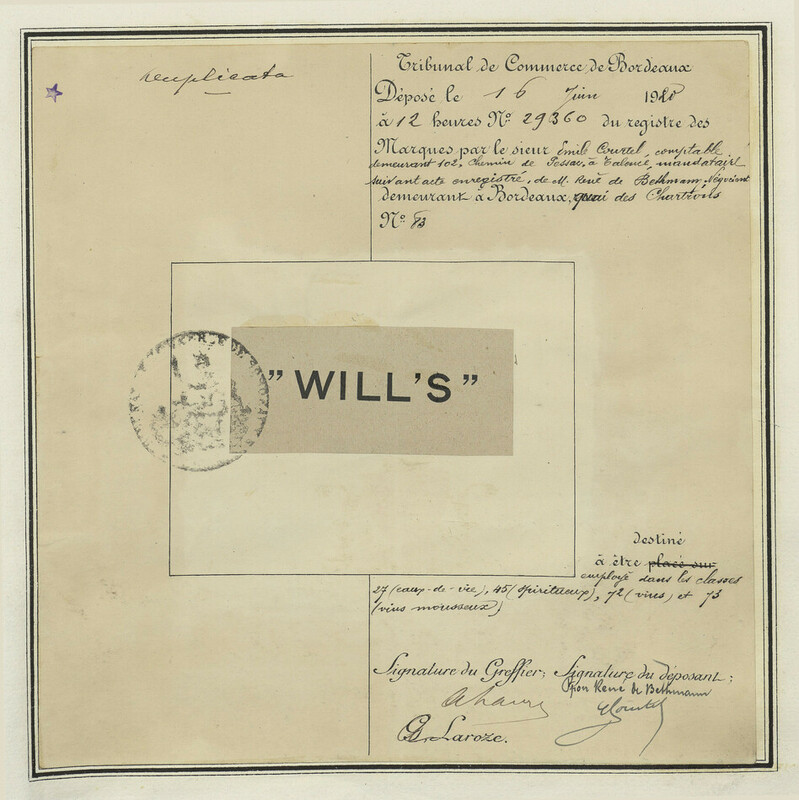 duplicata
Tribunal de Commerce de Bordeaux
Déposé le 16 Juin 1920
à 12 heures No. 29360 du registre des
Marques par le sieur Emile Courtel, comptable
demeurant 102, Chemin de Pessac, à Talence mandataire
suivant acte enregistré, de M. René de Bethmann, Négociant
demeurant à Bordeaux, quai des Chartrons
No. 83
DE BORDEAUX
" WILL'S "
destiné
à être placé sur
employé dans les classes
27 (eaux-de-vie), 45 (spiritueux), 72 (vins) et 73
(vins mousseux)
Signature du Greffier: Signature du déposant:
Pon René de Bethmann
Courtel
G. Laroze.